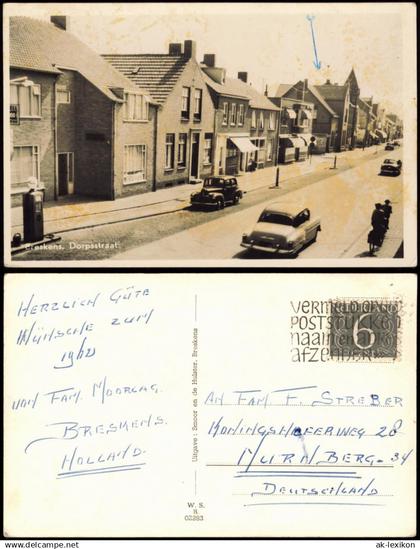 Breskens, Dorpsstraat
HERZLICH GÜTE
WÜNSCHE ZUM
VON FAM. MOORLAG.
BRESKENS.
HOLLAND.
Uitgave: Smoor en de Hulster, Breskens
W. S.
R
02283
VERMELD OP UW
POSTSTUKKEN
naam en
afzender
6
AN FAM F. STREBER
KONINGSHOFERWEG 28
NURNBERG-34
DEUTSCHLAND
© ak-lexikon
ak-lexikon.com